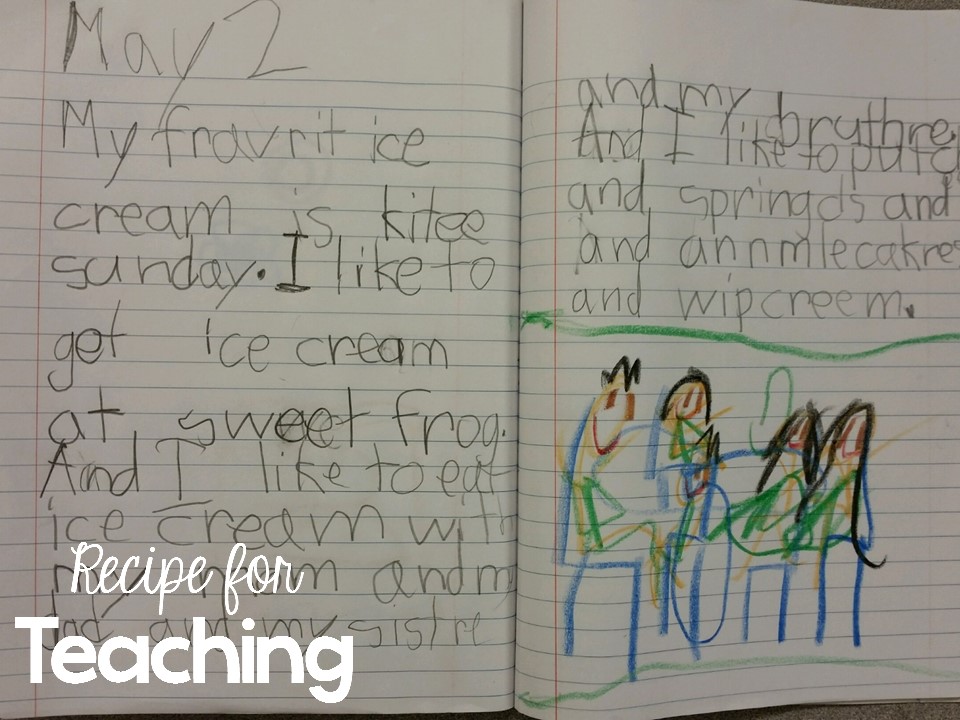 May 2
My fravrit ice
cream is kitee
sunday. I like to
get ice cream
at sweet frog.
And I like to eat
ice cream with
my mom and m
dad and my sistre
Recipe for
Teaching
and my bruthre
And I like to put
and springds and
and annmlecakres
and wipcreem.